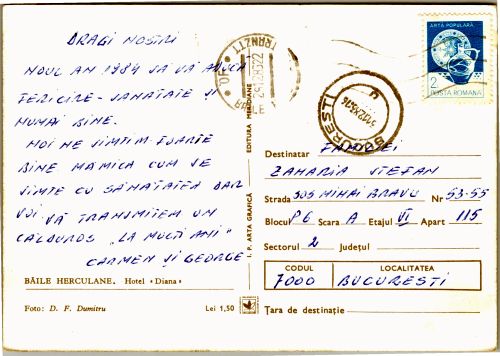 DRAGI NOSTRI
NOUL AN 1984 SĂ VĂ ADUCĂ
FERICIRE - SANATATE ȘI
NUMAI BINE.
NOI NE SIMTIM FOARTE
BINE MAMICA CUM SE
SIMTE CU SĂNATATEA DAR
VOI VĂ TRANSMITEM UN
CALDUROS „LA MULTI ANI"
CARMEN ȘI GEORGE
BĂILE HERCULANE. Hotel «Diana»
Foto: D. F. Dumitru
Lei 1,50
I. P. ARTA GRAFICĂ
EDITURA MERIDIANE
TRANZIT
BUCUREȘTI
ARTA POPULARĂ
2
POSTA ROMANA
Destinatar FAMILIEI
ZAHARIA STEFAN
Strada 305 MIHAI BRAVU Nr 53-55
Blocul P6 Scara A Etajul VI Apart 115
Sectorul 2 Județul
CODUL LOCALITATEA
7000 BUCURESTI
Țara de destinație